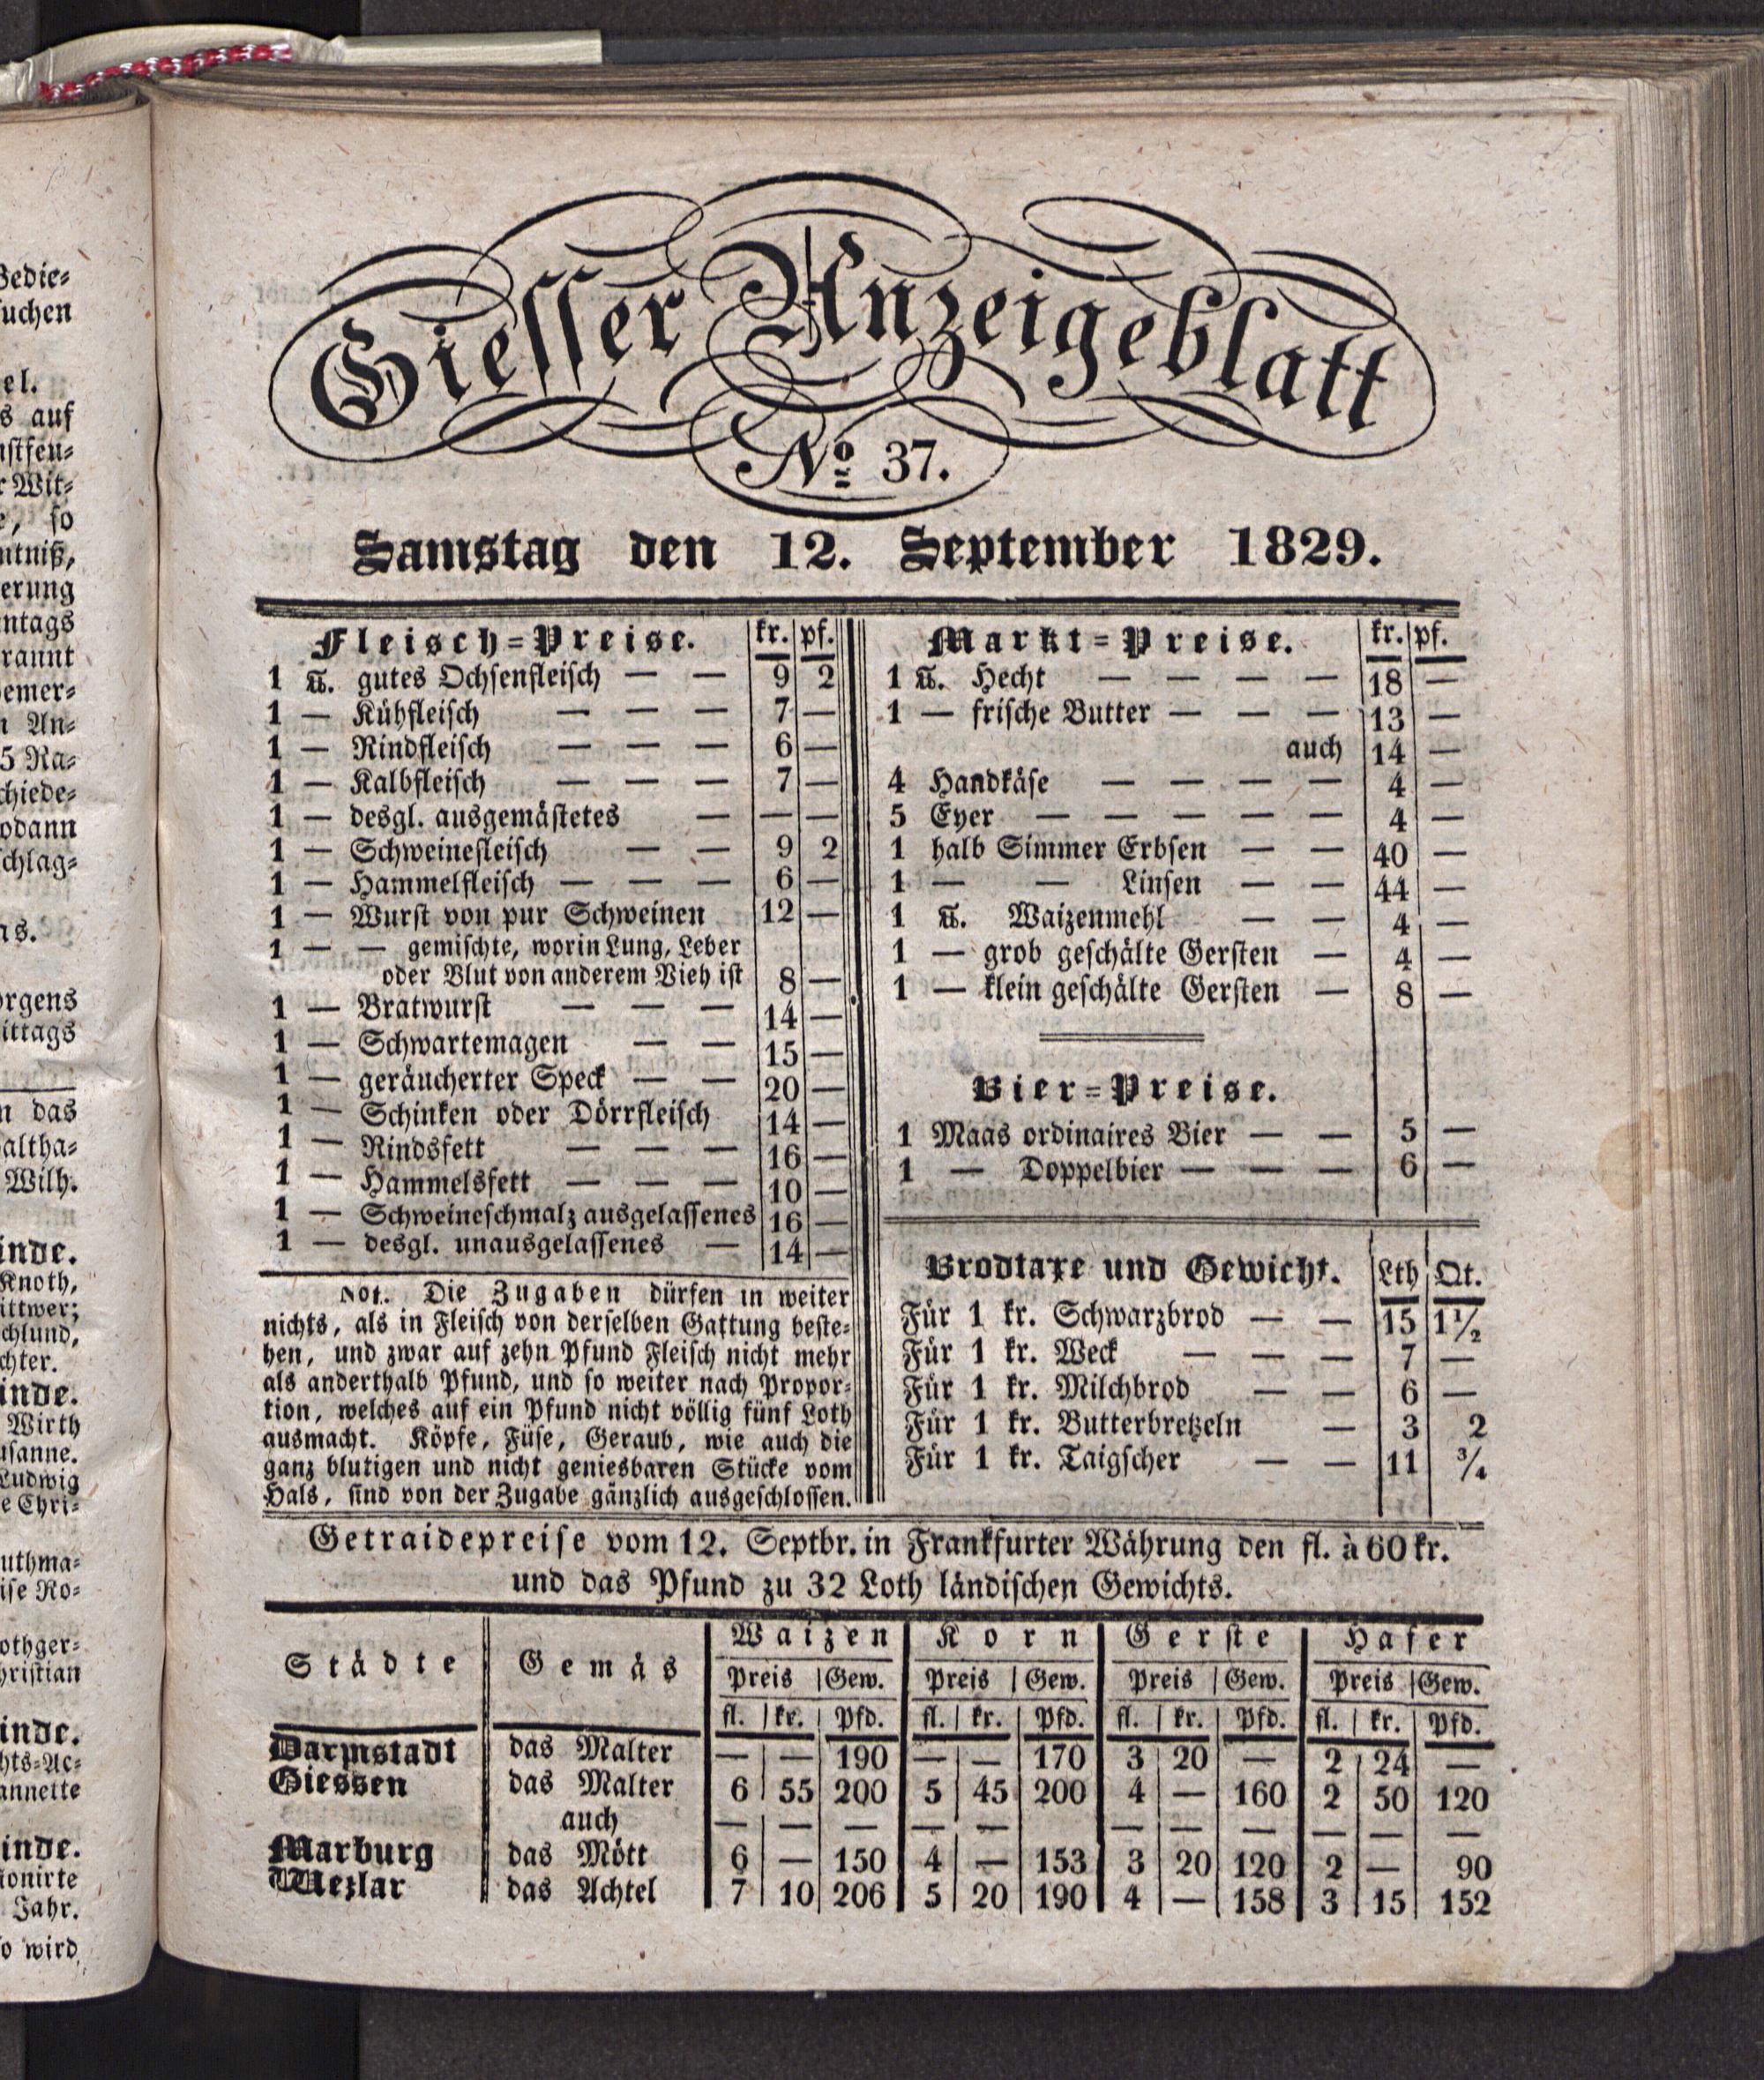 Bedie⸗
suchen
el.
s auf
nstfeu⸗
r Wit⸗
e, so
ntniß,
erung
ntags
rannt
bemer⸗
n An⸗
5 Ra⸗
chiede⸗
odann
chlag⸗
ns.
orgens
ittags
n das
altha⸗
Wilh.
inde.
Knoth,
ittwer;
chlund,
chter.
inde.
Wirth
usanne.
Ludwig
e Chri⸗
uthma⸗
ise Ro⸗
othger⸗
hristian
inde.
hts⸗Ac⸗
annette
inde.
ionirte
Jahr.
o wird
Giesser Anzeigeblatt
No 37.
Samstag den 12. September 1829.
Fleisch⸗Preise. kr. pf.
1 ℔. gutes Ochsenfleisch — — 9 2
1 — Kühfleisch — — — 7 —
1 — Rindfleisch — — — 6 —
1 — Kalbfleisch — — — 7 —
1 — desgl. ausgemästetes — — —
1 — Schweinefleisch — — 9 2
1 — Hammelfleisch — — — 6 —
1 — Wurst von pur Schweinen 12 —
1 — — gemischte, worin Lung, Leber
oder Blut von anderem Vieh ist 8 —
1 — Bratwurst — — — 14 —
1 — Schwartemagen — — 15 —
1 — geräucherter Speck — — 20 —
1 — Schinken oder Dörrfleisch 14 —
1 — Rindsfett — — — 16 —
1 — Hammelsfett — — — 10 —
1 — Schweineschmalz ausgelassenes 16 —
1 — desgl. unausgelassenes — 14 —
Not. Die Zugaben dürfen in weiter
nichts, als in Fleisch von derselben Gattung beste⸗
hen, und zwar auf zehn Pfund Fleisch nicht mehr
als anderthalb Pfund, und so weiter nach Propor⸗
tion, welches auf ein Pfund nicht völlig fünf Loth
ausmacht. Köpfe, Füse, Geraub, wie auch die
ganz blutigen und nicht geniesbaren Stücke vom
Hals, sind von der Zugabe gänzlich ausgeschlossen.
Markt⸗Preise. kr. pf.
1 ℔. Hecht — — — — 18 —
1 — frische Butter — — — 13 —
auch 14 —
4 Handkäse — — — — 4 —
5 Eyer — — — — — 4 —
1 halb Simmer Erbsen — — 40 —
1 — — Linsen — — 44 —
1 ℔. Waizenmehl — — 4 —
1 — grob geschälte Gersten — 4 —
1 — klein geschälte Gersten — 8 —
Bier⸗Preise.
1 Maas ordinaires Bier — — 5 —
1 — Doppelbier — — — 6 —
Brodtaxe und Gewicht. Lth Qt.
Für 1 kr. Schwarzbrod — — 15 1½
Für 1 kr. Weck — — — 7 —
Für 1 kr. Milchbrod — — 6 —
Für 1 kr. Butterbretzeln — 3 2
Für 1 kr. Taigscher — — 11 ¾
Getraidepreise vom 12. Septbr. in Frankfurter Währung den fl. à 60 kr.
und das Pfund zu 32 Loth ländischen Gewichts.
Städte Gemäs Waizen Korn Gerste Hafer
Preis Gew. Preis Gew. Preis Gew. Preis Gew.
fl. kr. Pfd. fl. kr. Pfd. fl. kr. Pfd. fl. kr. Pfd.
Darmstadt das Malter — — 190 — — 170 3 20 — 2 24 —
Giessen das Malter 6 55 200 5 45 200 4 — 160 2 50 120
auch — — — — — — — — — — —
Marburg das Mött 6 — 150 4 — 153 3 20 120 2 — 90
Wezlar das Achtel 7 10 206 5 20 190 4 — 158 3 15 152